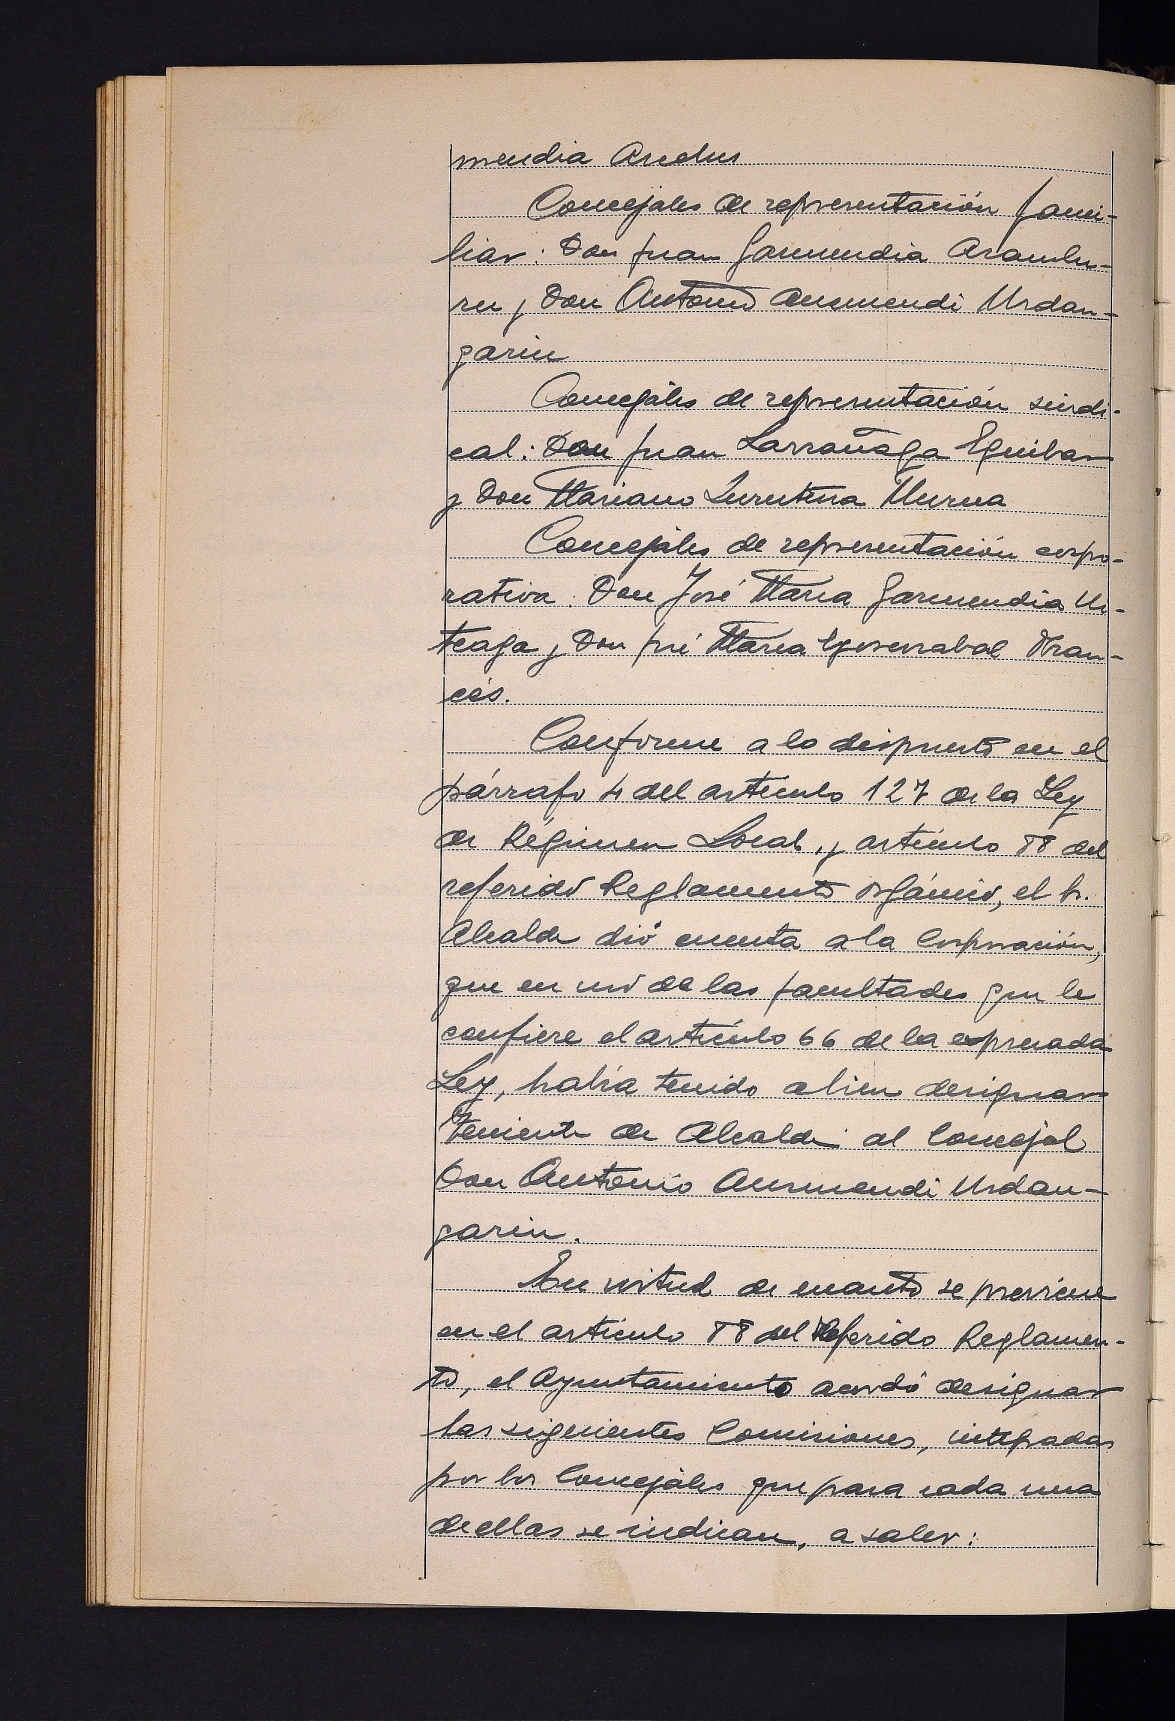 mendia Aredus
Concejales de representación fami-
liar: Don Juan Garmendia Arambu-
ru y Don Antonio Ausmendi Urdan-
garin
Concejales de representación sindi-
cal: Don Juan Larrañaga Eguibar
y Don Mariano Murua
Concejales de representación corpo-
rativa. Don José Maria Garmendia Ur-
teaga y Don José Maria Fran-
cés.
Conforme a lo dispuesto en el
párrafo 4 del artículo 127 de la Ley
de Régimen Local, y artículo 88 del
referido Reglamento orgánico, el Sr.
Alcalde dió cuenta a la Corporación,
que en uso de las facultades que le
confiere el artículo 66 de la expresada
Ley, había tenido a bien designar
Teniente de Alcalde al Concejal
Don Antonio Ausmendi Urdan-
garin.
En virtud de cuanto se previene
en el artículo 88 del Referido Reglamen-
to, el Ayuntamiento acordó designar
las siguientes Comisiones, integradas
por los Concejales que para cada una
de ellas se indican, a saber: